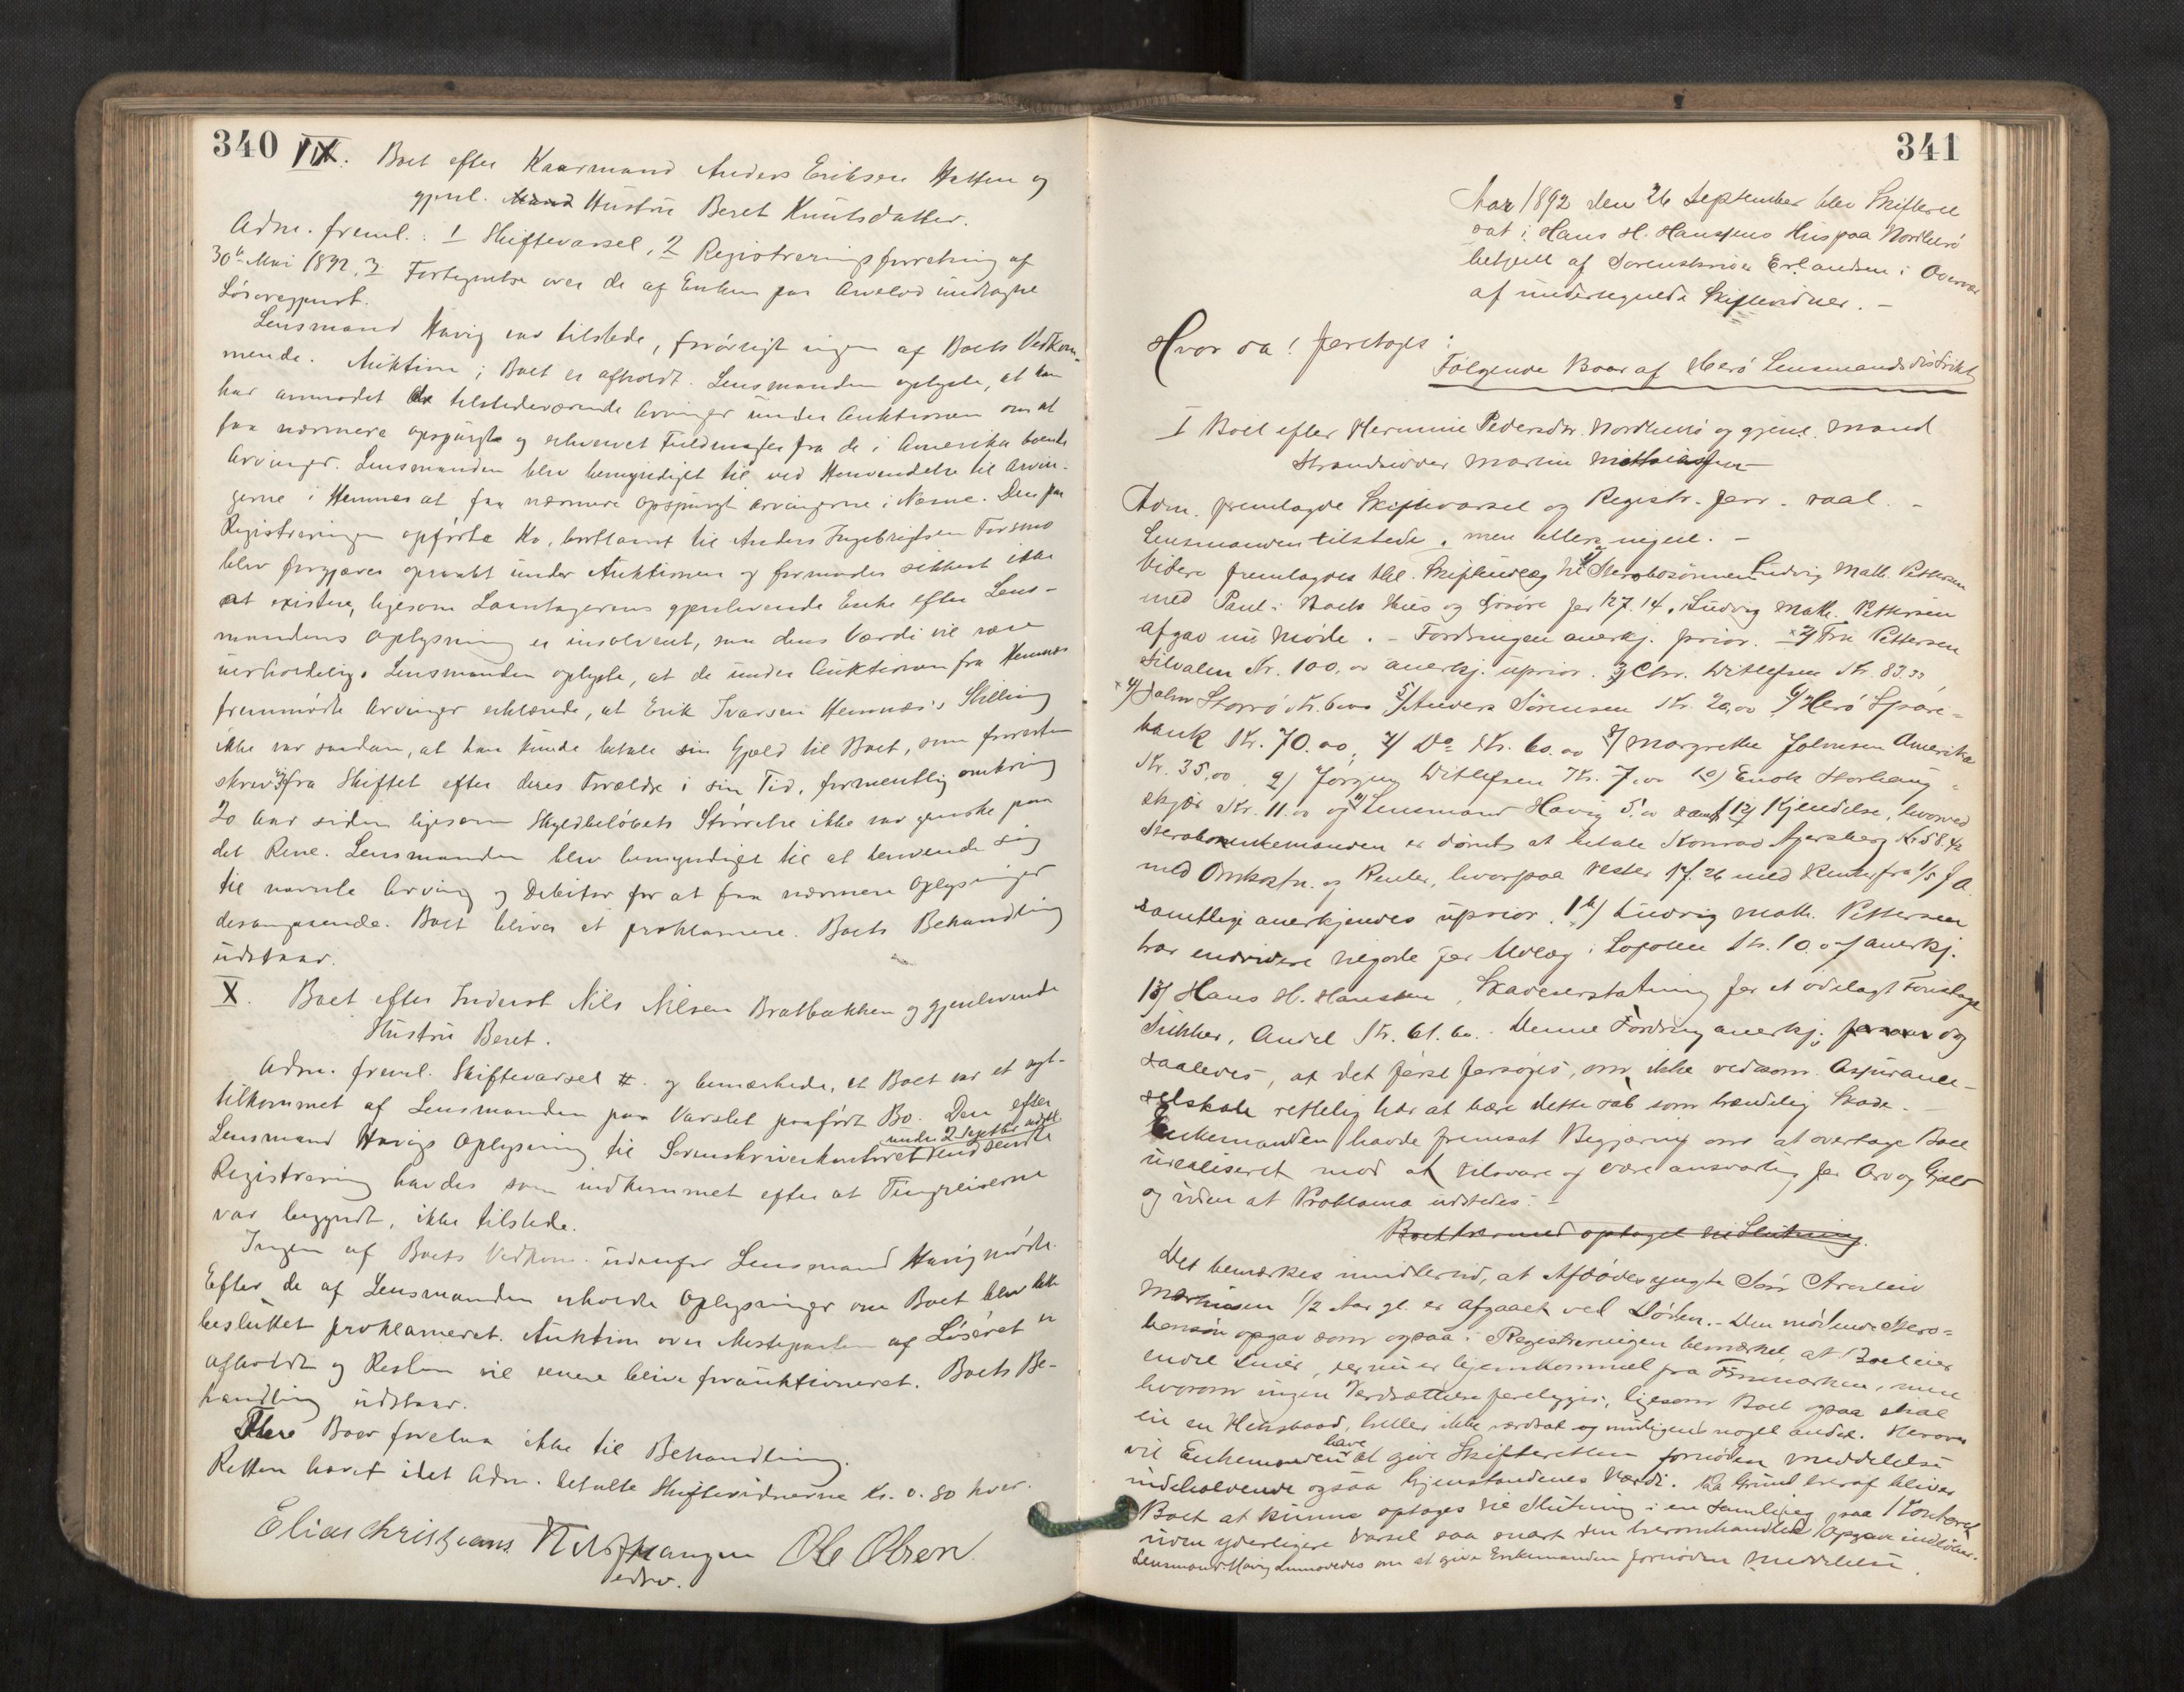 340
IX. Boet efter Kaarmand Anders Eriksen Hatten og
gjenl. Hustru Beret Knutsdatter.
Adm. freml.: 1 Skiftevarsel, 2 Registreringsforretning af
30te Mai 1892, 3 Fortegnelse over de af Enken paa Arvelod
Lösöregjenst.
Lensmand Havig var tilstede, forövrigt ingen af Boets Vedkom-
mende. Auktion i Boet er afholdt. Lensmanden oplyste, at han
har anmodet de tilstedeværende Arvinger under Auktionen om at
faa nærmere opspurgt og erhvervet Fuldmagter fra de i Amerika boende
Arvinger. Lensmanden blev bemyndiget til ved Henvendelse til Arvin-
gerne i Hemnes at faa nærmere opspurgt Arvingerne i Navne. Den paa
Registreringen opförte Ko, bortlaant til Anders Ingebrigtsen Forsmo
blev forgjæves opraabt under Auktionen og formodes sikkert ikke
at existere, ligesom Laantagerens gjenlevende Enke efter Lens-
mandens Oplysning er insolvent, saa dens Værdi vil være
uerholdelig. Lensmanden oplyste, at de under Auktionen fra Hemnes
fremmödte Arvinger erklærede, at Erik Ivarsen Hemnæs's Stilling
ikke var saadan, at han kunde betale sin Gjæld til Boet, som forresten
skrev sig fra Skiftet efter deres Forældre i sin Tid, formentlig omkring
20 Aar siden ligesom Skyldbelöbets Störrelse ikke var ganske paa
det Rene. Lensmanden blev bemyndiget til at henvende sig
til nævnte Arving og Debitor for at faa nærmere Oplysninger
desangaaende. Boet bliver at proklamere. Boets Behandling
udstaar.
X. Boet efter Inderst Nils Nilsen Bratbakken og gjenlevende
Hustru Beret.
Adm. freml. Skiftevarsel og bemærkede, at Boet var et nyt-
tilkommet af Lensmanden paa Varslet paafört Bo. Den efter
Lensmand Havigs Oplysning til Sorenskriverkontoret under 2 Septbr indsendte
Registrering havdes som indkommet efter at Tingreiserne
var begyndt, ikke tilstede.
Ingen af Boets Vedkom. udenfor Lensmand Havig mödte.
Efter de af Lensmanden erholdte Oplysninger om Boet blev dette
besluttet proklameret. Auktion over Mesteparten af Lösöret er
afholdt og Resten vil senere blive forauktioneret. Boets Be-
handling udstaar.
Flere Boer foretoges ikke til Behandling.
Retten hævet idet Adm. betalte Skiftevidnerne Kr. 0.80 hver.
Elias Christians Ole Olsen
edsv.
341
Aar 1892 den 26 September blev Skifteret
sat i Hans H. Hanssens Hus paa Nordherö
betjent af Sorenskriver Erlandsen i Overvær
af undertegnede Skiftevidner. -
Hvor da! foretoges:
Fölgende Boer af Herö Lensmandsdistrikt
I Boet efter Hermine Pedersdtr. Nordherö og gjenl. Mand
Strandsidder Martin Mathiassen
Adm. fremlagde Skiftevarsel og Registr. forr. saal. -
Lensmanden tilstede, men ellers ingen. -
Videre fremlagdes til Skifteudlæg 1/ Sterbosönnen Ludvig Math. Pettersen
med Pant i Boets Hus og Lösöre for 127.14. Ludvig Math. Pettersen
afgav nu Möde. - Fordringen anerkj. prior. 2/ Fru Pettersen
Silvalen Kr. 100.00 anerkj. uprior. 3/ Chr. Ditlefsen Kr. 83.33,
4/ John Storrö Kr. 6.00 5/ Anders Sörensen Kr. 20,00 6/ Herö Spare-
bank Kr. 70.00, 7/ Do Kr. 60.00 8/ Margrethe Johnsen Amerika
Kr. 35,00 9/ Jörgen Ditlefsen Kr. 7,00 10) Enok Storhaug-
skjær Kr. 11.00 og 11/ Lensmand Havig 5.00 samt 12/ Kjendelse, hvorved
Sterboenkemanden er dömt at betale Konrad Agersborg Kr 58.42
med Omkostn. og Renter, hvorpaa rester 17.26 med Renter fra 1/5 f A.
samtlige anerkjendes uprior. Ludvig Math. Pettersen
har endvidere tilgode for Udlæg i Lofoten Kr. 10.00 anerkj.
13/ Hans H. Hanssen, Skadeserstatning for et ödelagt
Andel Kr. 61.60. Denne Fordring anerkj. og
saaledes, at det först forsöges, om ikke vedkom. Assurance-
selskab rettelig har at bære dette Tab som hændelig Skade. -
Enkemanden havde fremsat Begjæring om at overtage Boet
urealiseret mod at tilsvare og være ansvarlig for Arv og Gjæld
og uden at Proklama udstedes. -
Boet dermed optaget til Slutning.
Det bemærkes imidlertid, at Afdödes yngste Sön
Martinsen 1/2 Aar gl. er afgaaet ved Döden. - Den mödende Sterbo-
sön opgav som ogsaa i Registreringen bemærket, at Boet eier
endel som nu er hjemkommet fra Finmarken, men
hvorom ingen Værdsættelse foreligger, ligesom Boet ogsaa skal
eie en heller ikke værdsat og muligens noget andet. Herover
vil Enkemanden have at give Skifteretten fornöden Meddelelse
indeholdende ogsaa Gjenstandenes Værdi. Paa Grund heraf bliver
Boet at kunne optages til Slutning i en Samling paa Kontoret
uden yderligere Varsel saa snart den heromhandlede Opgave indlöber.
Lensmand Havig anmodedes om at give Enkemanden fornöden Meddelelse.